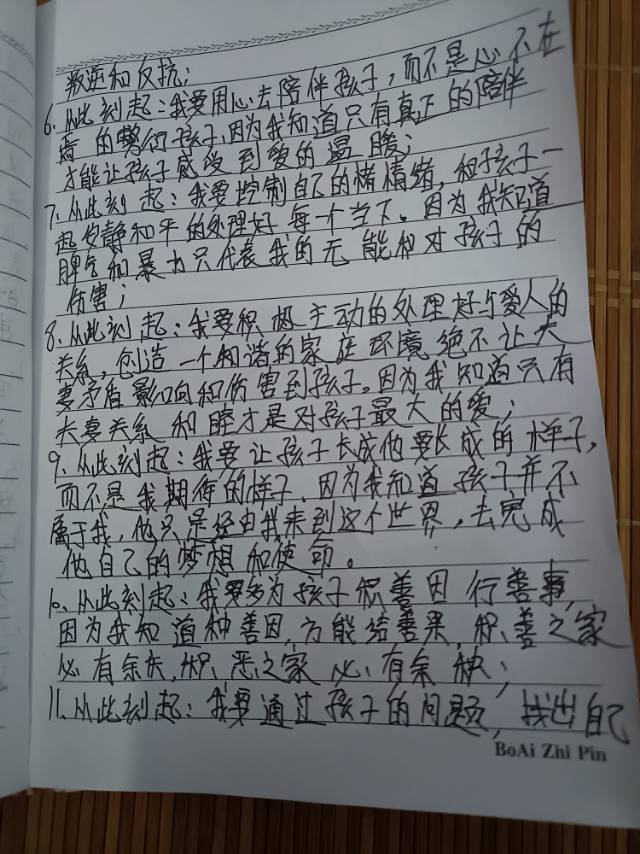 叛逆和反抗；
6、从此刻起：我要用心去陪伴孩子，而不是心不在
焉的敷衍孩子，因为我知道只有真正的陪伴
才能让孩子感受到爱的温暖；
7、从此刻起：我要控制自己的情绪，和孩子一
起安静和平的处理好每个当下。因为我知道
脾气和暴力只代表我的无能和对孩子的
伤害；
8、从此刻起：我要积极主动的处理好与爱人的
关系，创造一个和谐的家庭环境绝不让夫
妻矛盾影响和伤害到孩子。因为我知道只有
夫妻关系和睦才是对孩子最大的爱；
9、从此刻起：我要让孩子长成他要长成的样子，
而不是我期待的样子。因为我知道孩子并不
属于我，他只是经由我来到这个世界，去完成
他自己的梦想和使命。
10、从此刻起：我要多为孩子积善因行善事，
因为我知道种善因，方能结善果，积善之家
必有余庆，积恶之家必有余殃；
11、从此刻起：我要通过孩子的问题，找出自己
BoAi Zhi Pin